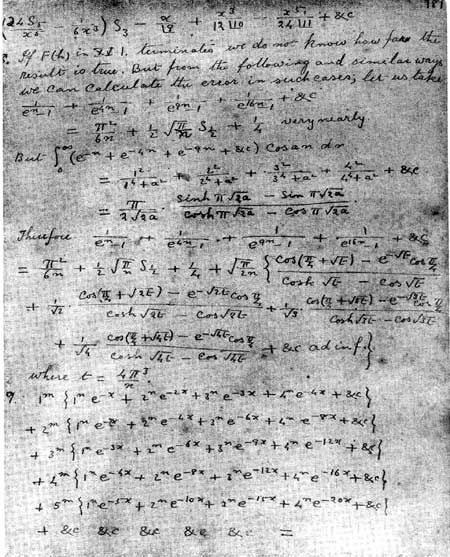 S₃ - + + &c
If F(h) in XV 1. terminates we do not know how far the
result is true. But from the following and similar ways
we can calculate the error in such cases; let us take
1/(eⁿ-1) + 1/(e⁴ⁿ-1) + 1/(e⁹ⁿ-1) + 1/(e¹⁶ⁿ-1) + &c
= π²/6n + 1/2 √(π/n) S½ + 1/4 very nearly.
But ∫₀^∞ (e⁻ⁿ + e⁻⁴ⁿ + e⁻⁹ⁿ + &c) Cos an dn
= 1²/(1⁴+a²) + 2²/(2⁴+a²) + 3²/(3⁴+a²) + 4²/(4⁴+a²) + &c
= π/(2√2a) · (sinh π√2a - sin π√2a)/(cosh π√2a - cos π√2a).
Therefore 1/(eⁿ-1) + 1/(e⁴ⁿ-1) + 1/(e⁹ⁿ-1) + 1/(e¹⁶ⁿ-1) + &c
= π²/6n + 1/2 √(π/n) S½ + 1/4 + √(π/2n) { (cos(π/4+√t) - e^-√t cos π/4)/(cosh √t - cos √t)
+ 1/√2 · (cos(π/4+√2t) - e^-√2t cos π/4)/(cosh √2t - cos √2t) + 1/√3 · (cos(π/4+√3t) - e^-√3t cos π/4)/(cosh √3t - cos √3t)
+ 1/√4 (cos(π/4+√4t) - e^-√4t cos π/4)/(cosh √4t - cos √4t) + &c ad inf. }
where t = 4π³/n.
9. 1ᵐ {1ⁿe⁻ˣ + 2ⁿe⁻²ˣ + 3ⁿe⁻³ˣ + 4ⁿe⁻⁴ˣ + &c}
+ 2ᵐ {1ⁿe⁻²ˣ + 2ⁿe⁻⁴ˣ + 3ⁿe⁻⁶ˣ + 4ⁿe⁻⁸ˣ + &c}
+ 3ᵐ {1ⁿe⁻³ˣ + 2ⁿe⁻⁶ˣ + 3ⁿe⁻⁹ˣ + 4ⁿe⁻¹²ˣ + &c}
+ 4ᵐ {1ⁿe⁻⁴ˣ + 2ⁿe⁻⁸ˣ + 3ⁿe⁻¹²ˣ + 4ⁿe⁻¹⁶ˣ + &c}
+ 5ᵐ {1ⁿe⁻⁵ˣ + 2ⁿe⁻¹⁰ˣ + 3ⁿe⁻¹⁵ˣ + 4ⁿe⁻²⁰ˣ + &c}
+ &c &c &c &c &c =